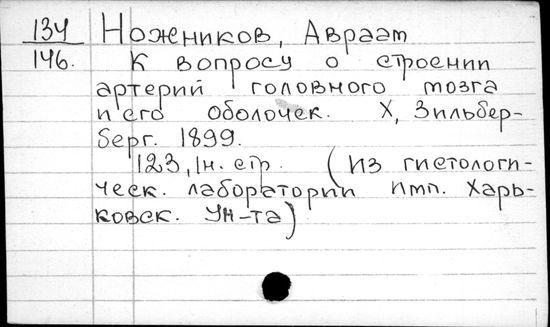 134 Ножеников, Авраам
146. К вопросу о строении
артерий головного мозга
и его оболочек. Х, Зильбер-
берг. 1899.
123, 1н. стр. (Из гистологи-
ческ. лаборатории имп. Харь-
ковск. Ун-та)